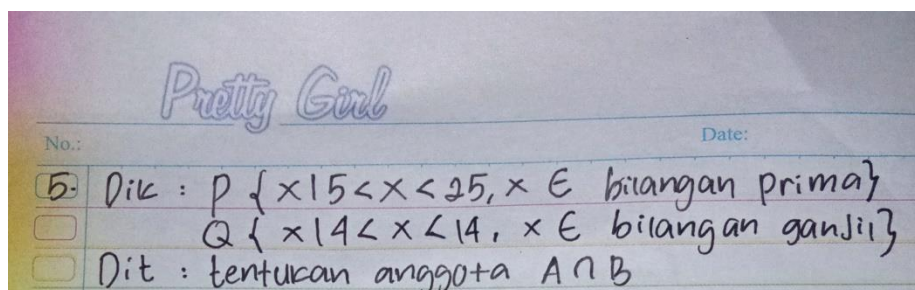 Pretty Girl
No.:
Date:
5. Dik : P { x | 5 < x < 25, x ∈ bilangan prima}
Q { x | 4 < x < 14, x ∈ bilangan ganjil}
Dit : tentukan anggota A ∩ B